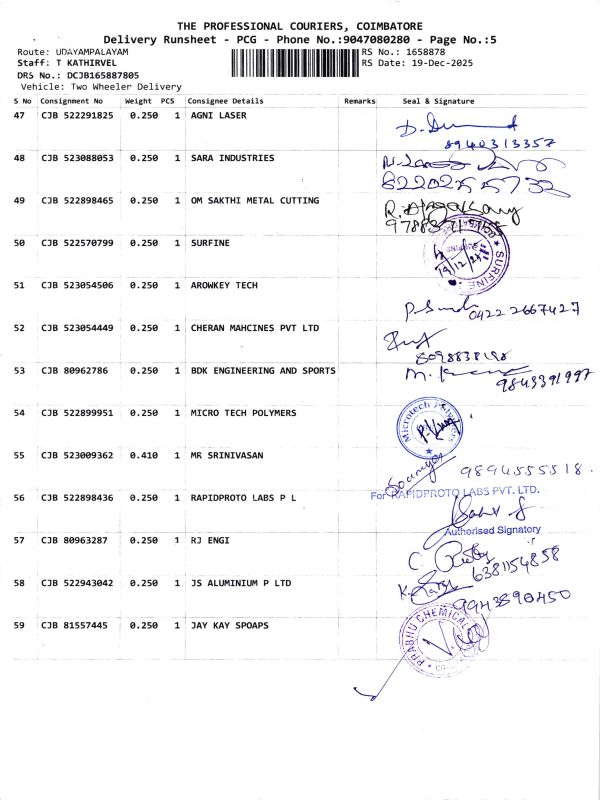 THE PROFESSIONAL COURIERS, COIMBATORE
Delivery Runsheet - PCG - Phone No.:9047080280 - Page No.:5
Route: UDAYAMPALAYAM RS No.: 1658878
Staff: T KATHIRVEL RS Date: 19-Dec-2025
DRS No.: DCJB165887805
Vehicle: Two Wheeler Delivery
S No Consignment No Weight PCS Consignee Details Remarks Seal & Signature
47 CJB 522291825 0.250 1 AGNI LASER
8940313357
48 CJB 523088053 0.250 1 SARA INDUSTRIES
49 CJB 522898465 0.250 1 OM SAKTHI METAL CUTTING
50 CJB 522570799 0.250 1 SURFINE
SURFINE
19/12/25
51 CJB 523054506 0.250 1 AROWKEY TECH
0422 2667427
52 CJB 523054449 0.250 1 CHERAN MAHCINES PVT LTD
53 CJB 80962786 0.250 1 BDK ENGINEERING AND SPORTS
9843391997
54 CJB 522899951 0.250 1 MICRO TECH POLYMERS
Microtech Polymers
55 CJB 523009362 0.410 1 MR SRINIVASAN
Soumya 9894555518.
56 CJB 522898436 0.250 1 RAPIDPROTO LABS P L
For RAPIDPROTO LABS PVT. LTD.
Authorised Signatory
57 CJB 80963287 0.250 1 RJ ENGI
6381154858
58 CJB 522943042 0.250 1 JS ALUMINIUM P LTD
9943590450
59 CJB 81557445 0.250 1 JAY KAY SPOAPS
PRABHU CHEMICAL